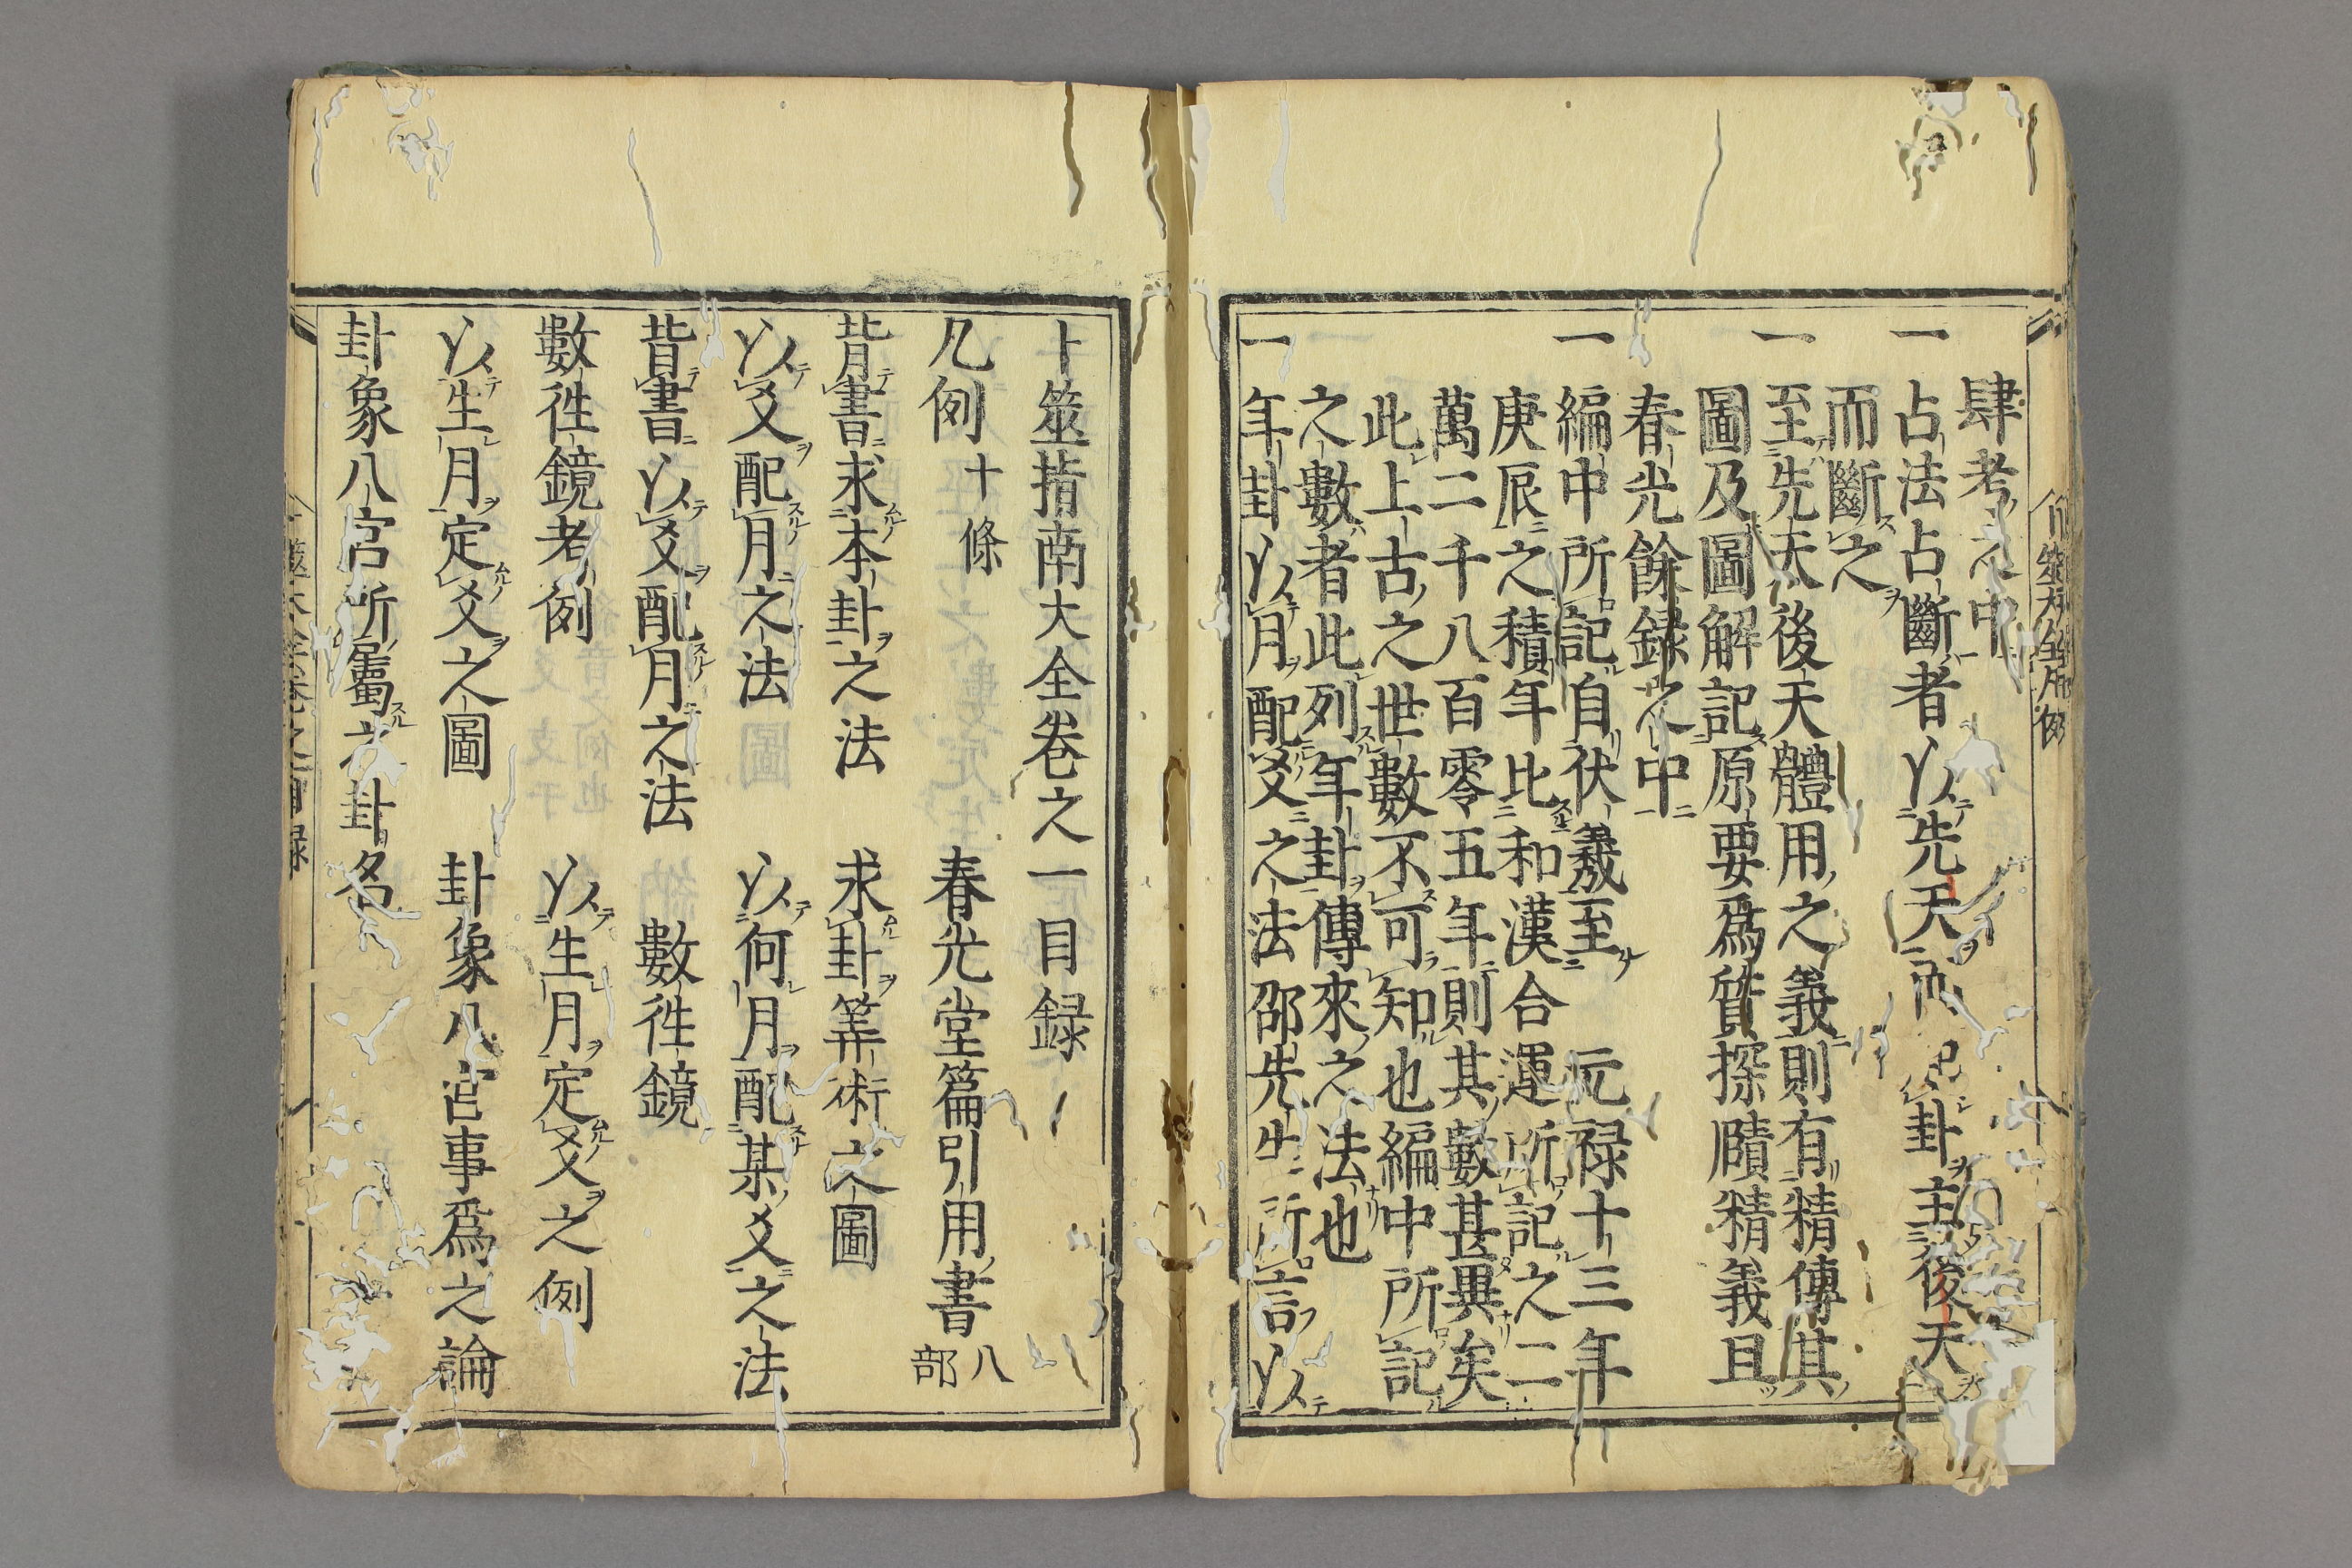 肆考之中
一占法占斷者以先天而起卦主後天
而斷之
一至先天後天體用之義則有精傳其
圖及圖解記原要爲質探賾精義且
春光餘録之中
一編中所記自伏羲至元禄十三年
庚辰之積年比和漢合運所記之二
萬二千八百零五年則其數甚異矣
此上古之世數不可知也編中所記
之數者此列年卦傳來之法也
一年卦以月配爻之法邵先生所言以
卜筮指南大全卷之一目録
凡例十條 春光堂篇引用書八部
背書求本卦之法 求卦筭術之圖
以爻配月之法 以何月配某爻之法
背書以爻配月之法 數徃鏡
數徃鏡考例 以生月定爻之例
以生月定爻之圖 卦象八宮事爲之論
卦象八宮所屬之卦名